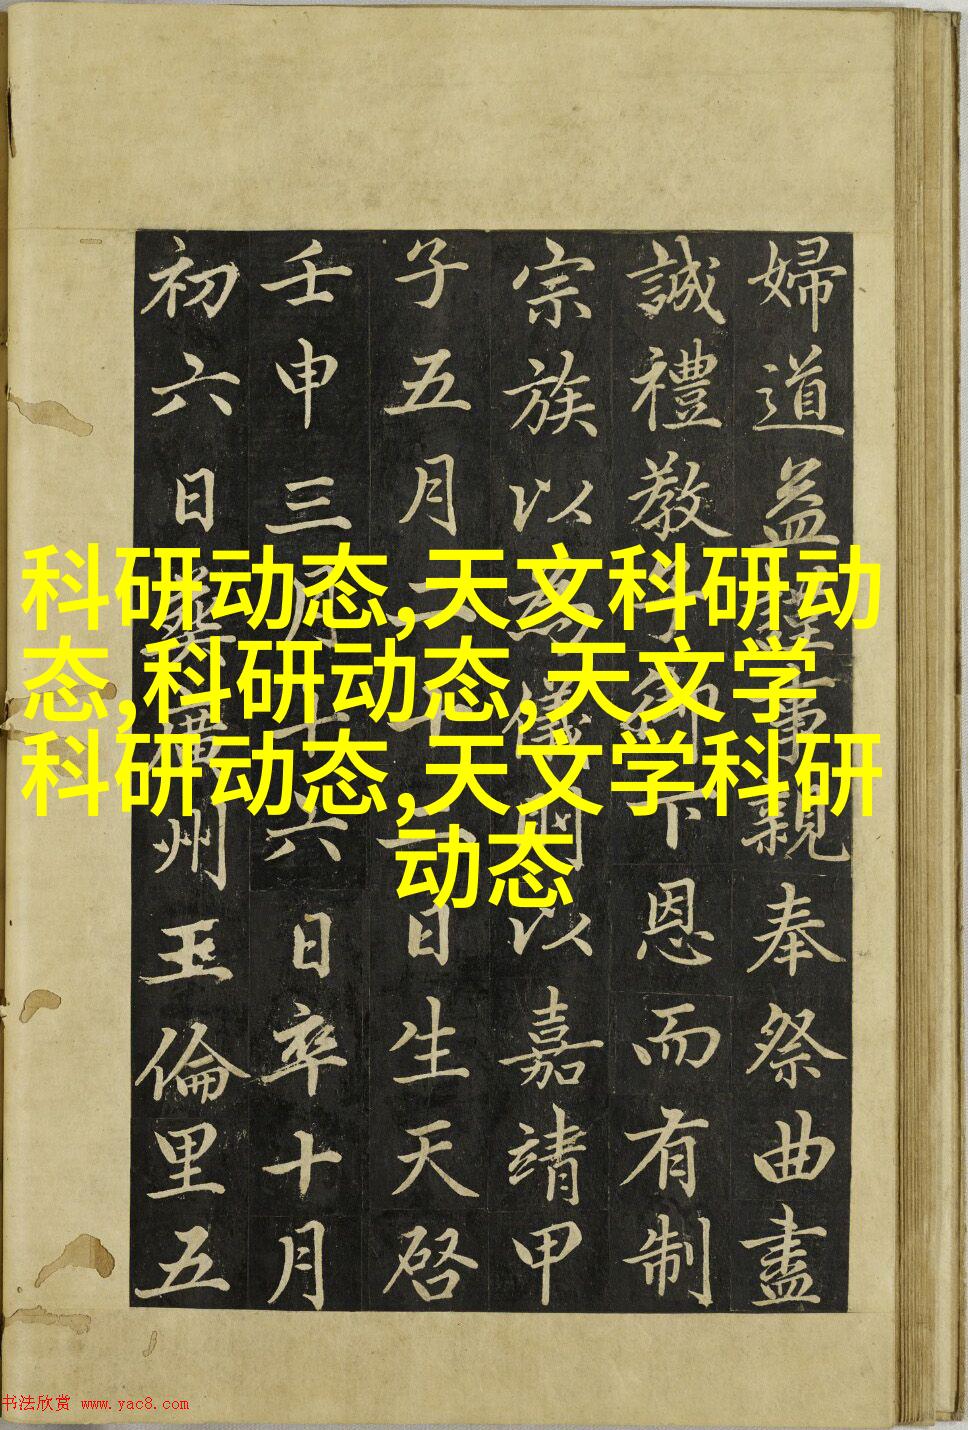 婦道益謹事親奉祭曲盡
誠禮教子御下恩而有制
宗族以為儀以嘉靖甲
子五月二十二日生天啓
壬申三月十六日卒十月
初六日葬橫州玉倫里五
科研动态,天文科研动
态,科研动态,天文学
科研动态,天文学科研
动态
书法欣赏 www.yac8.com